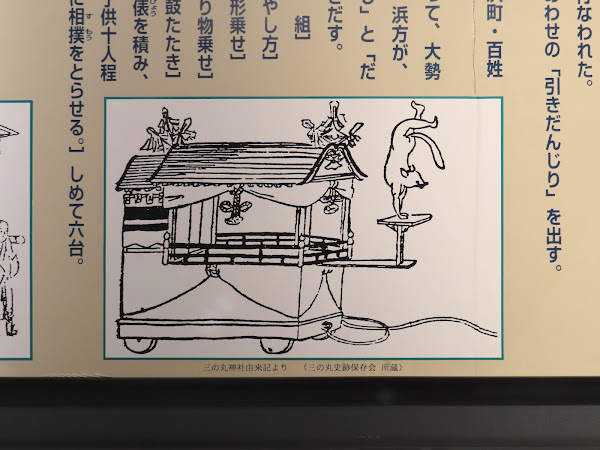 なわれた。
あわせの「引きだんじり」を出す。
町・百姓
て、大勢
浜方が、
」と「だ
だす。
組］
やし方］
形乗せ］
り物乗せ］
鼓たたき］
俵を積み、
子供十人程
に相撲をとらせる。］しめて六台。
すもう
三の丸神社由来記より （三の丸史跡保存会 所蔵）